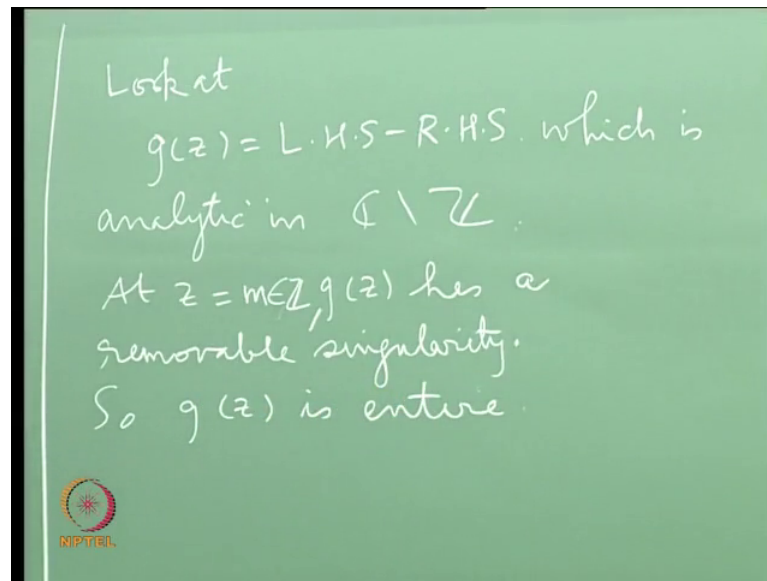 Look at
g(z) = L.H.S – R.H.S. which is
analytic in ℂ \ ℤ.
At z = m∈ℤ, g(z) has a
removable singularity.
So g(z) is entire.
NPTEL